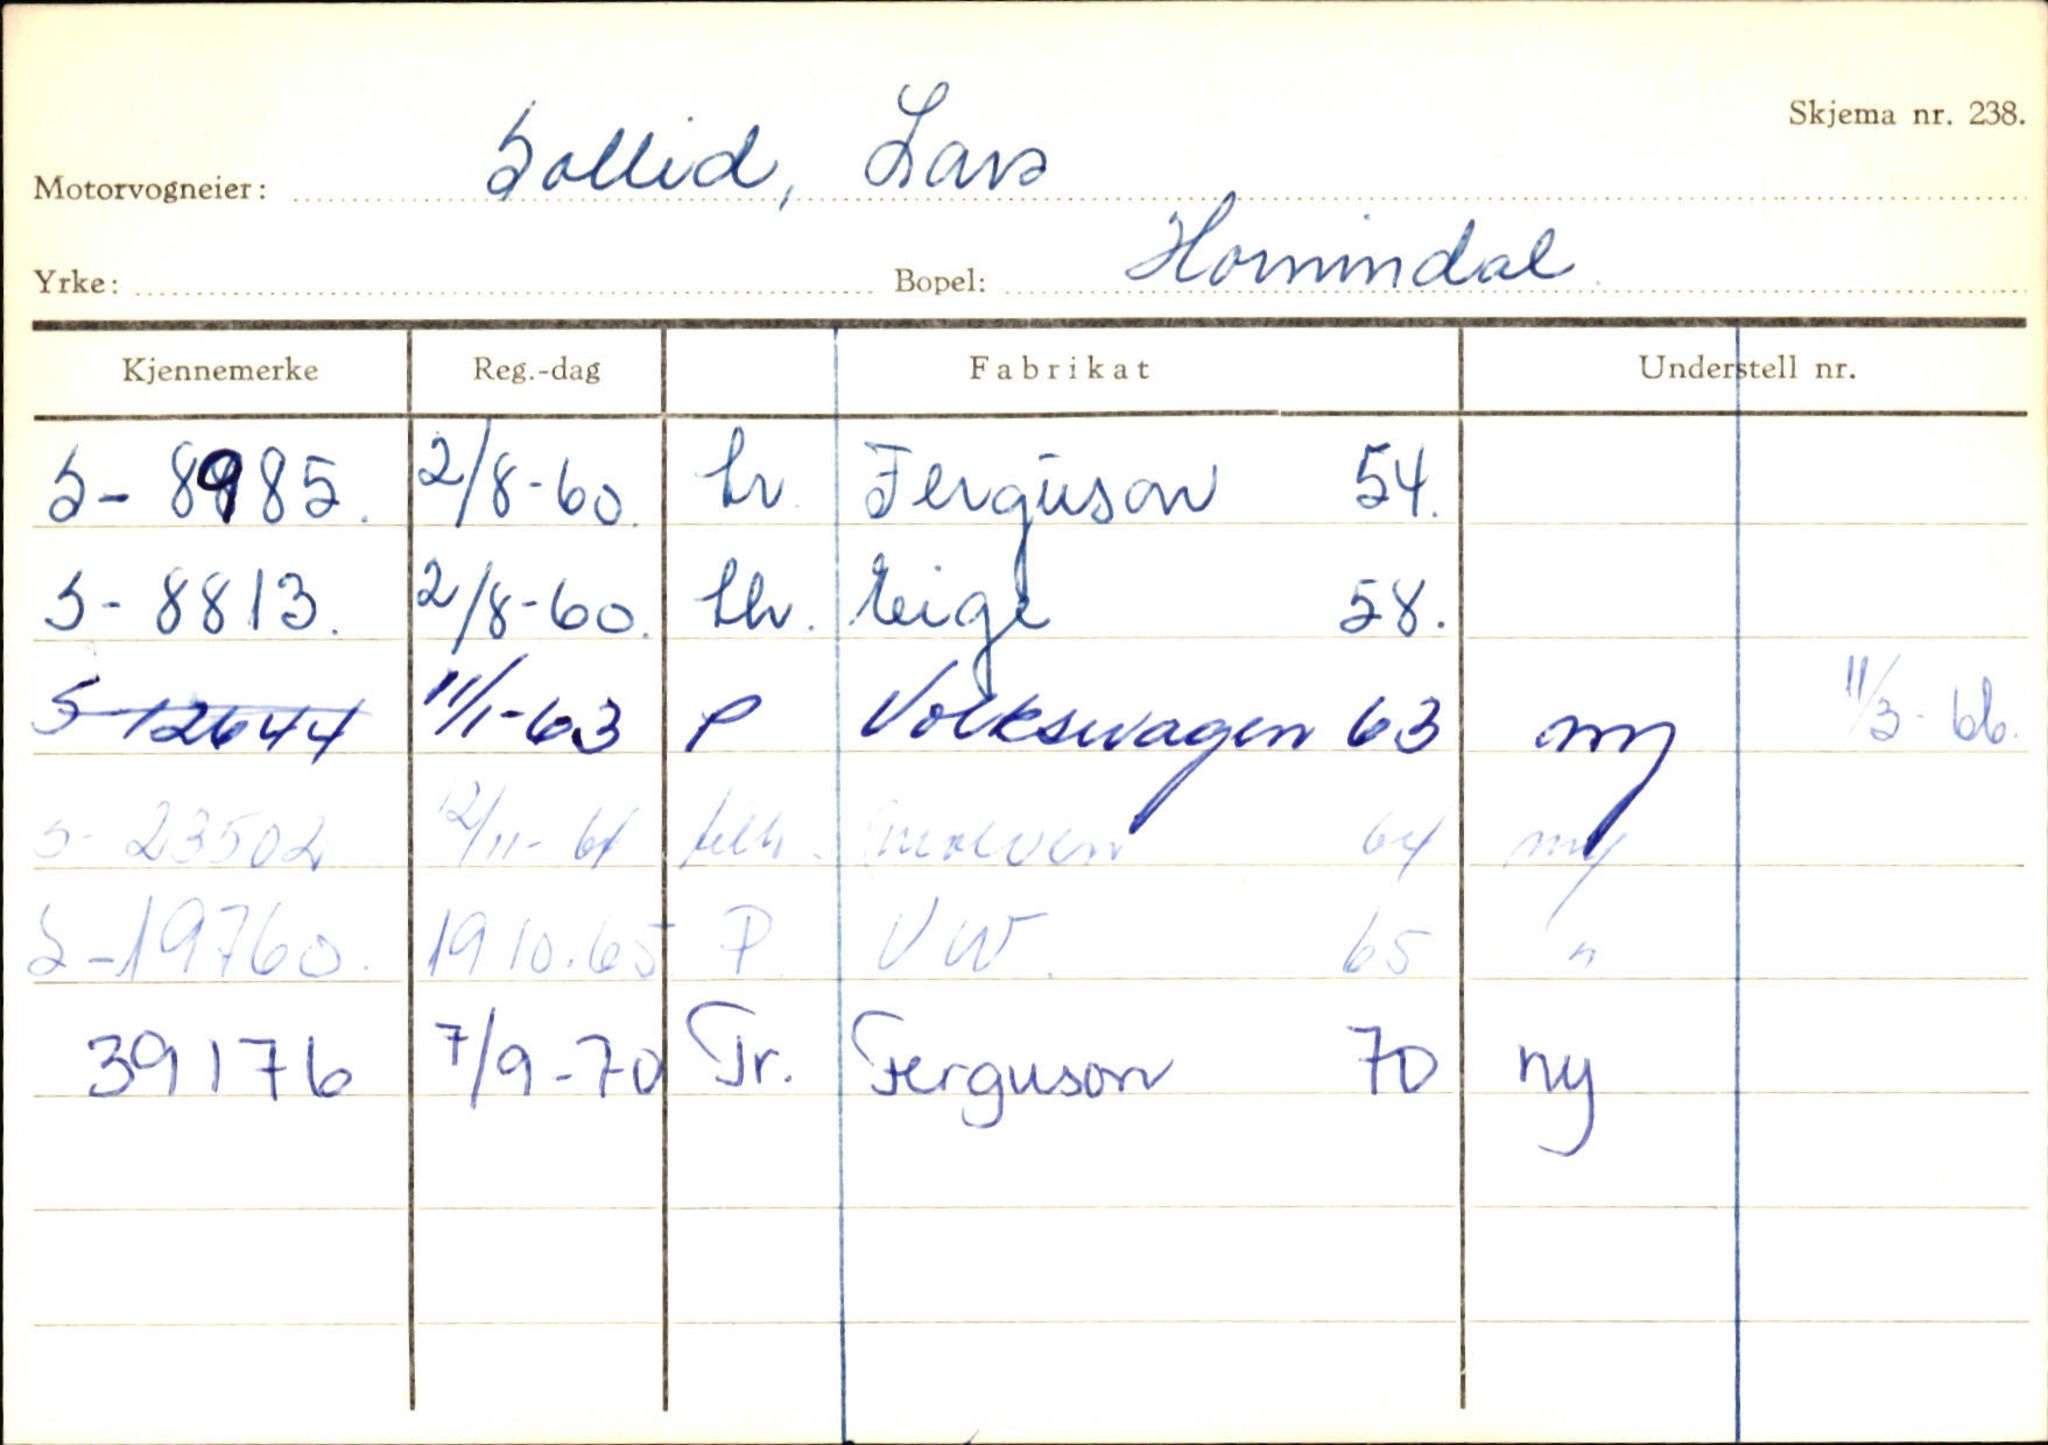 Skjema nr. 238.
Motorvogneier: Sollid, Lars
Yrke: Bopel: Hornindal
Kjennemerke Reg.-dag Fabrikat Understell nr.
S- 8985. 2/8-60. tr. Ferguson 54.
S- 8813. 2/8-60. tlh. Eige 58.
S-12644 11/1-63 P Volkswagen 63 ny 11/3-66.
S- 23502 12/11-64 tilh. Malven 64 ny
S-19760. 19.10.65 P. VW. 65 "
39176 7/9-70 Tr. Ferguson 70 ny